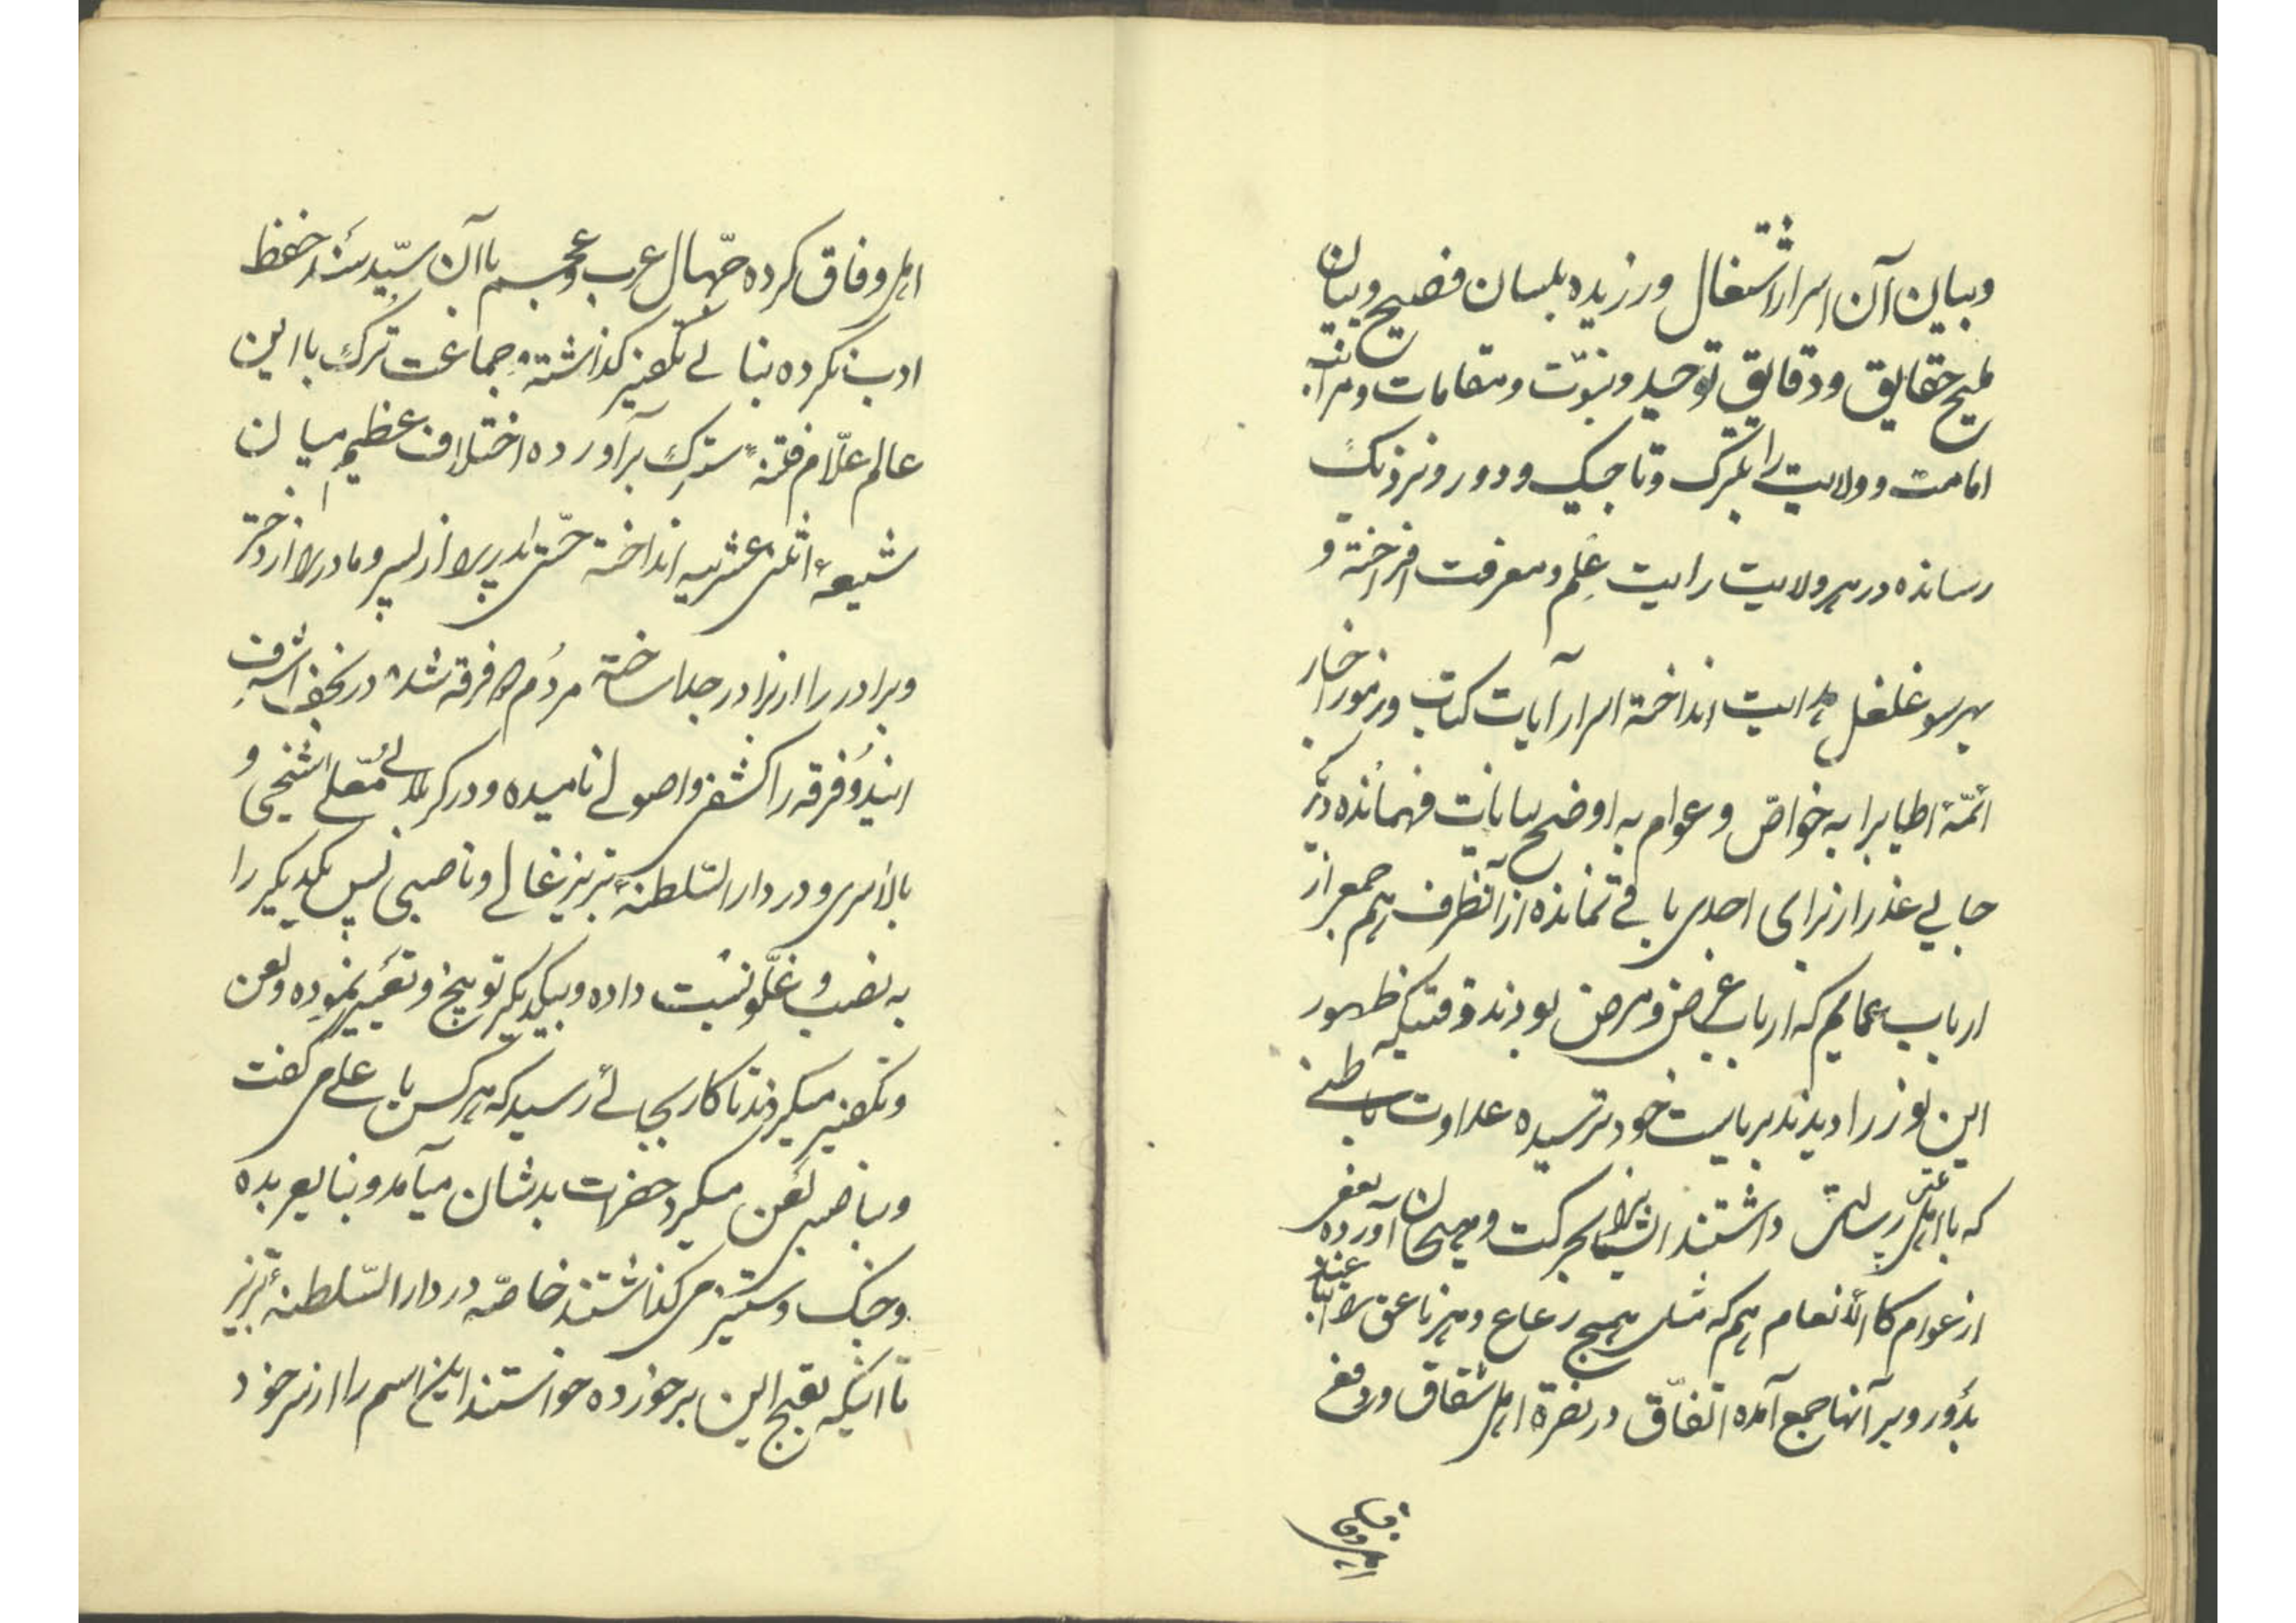 وبیان آن اسرار اشتغال ورزیده بلسان فصیح وبیان
ملیح حقایق ودقایق توحید ونبوّت ومقامات ومراتب
امامت وولایت را بترک وتاجیک ودور ونزدیک
رسانده در هر ولایت رایت عِلم ومعرفت افراخته و
بهر سو غلغل هدایت انداخته اسرار آیات کتاب ورموز اخبار
ائمّهٔ اطیابرا به خواصّ وعوام به اوضح بیانات فهمانده دیگر
جایی عذر از برای احدی باقے نمانده از آنطرف هم جمعی از
ارباب عمایم که ارباب غرض ومرض بودند وقتیکه ظهور
این نور را دیدند بریاست خود ترسیده عداوت باطنے
که با اهل رسالت داشتند ایشانرا بحرکت وهیجان آورده بعضی
از عوام کالأنعام هم که مثل همج رعاع وهر ناعق را اتباعند
بدَور وبر آنها جمع آمده اتّفاق در نصرة اهل شقاق ودفع
اهل وفاق
اهل وفاق کرده جهّال عرب وعجم با آن سیّد سند حفظ
ادب نکرده بنایے تکفیر گذاشته وجماعت ترک با این
عالم علّام فتنهٔ سترک برآورده اختلاف عظیم میان
شیعهٔ اثنی عشریه انداخته حتّی پدر را از پسر ومادر را از دختر
وبرادر را از برادر جدا ساخته مردُم دو فرقه شده در نجف اشرف
ایندو فرقه را کشفی واصولے نامیده ودر کربلایے مُعلّے شیخی و
بالاسری ودر دار السّلطنهٔ تبریز غالے وناصبی پس یکدیگر را
به نصب وغلوّ نسبت داده وبیکدیگر توبیخ وتعییر نموده ولعن
وتکفیر میکردند تا کار بجایے رسید که هر کس یا علے می گفت
وبناصبی لعن میکرد حضرات بدشان میآمد وبنای عربده
وجنک وستیز می گذاشتند خاصّه در دار السّلطنهٔ تبریز
تا اینکه بقبح این برخورده خواستند این اسم را از سر خود